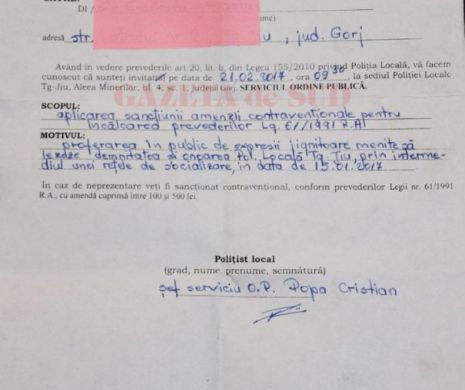 DI
nume)
adresă str. u, jud. Gorj
Având in vedere prevederile art.20, lit. b, din Legea 155/2010 privind Poliţia Locală, vă facem
cunoscut că sunteţi invitat pe data de 21.02.2017, ora 09 30 la sediul Poliţiei Locale
Tg-Jiu, Aleea Minerilor, bl. 4, sc. 1, judetul Gorj, SERVICIUL ORDINE PUBLICĂ.
GAZETA de SUD
SCOPUL:
aplicarea sancţiunii amenzii contravenţionale pentru
încălcarea prevederilor Lg. 61/1991 R.Al
MOTIVUL:
proferarea în public de expresii jignitoare menite să
lezeze demnitatea si onoarea Pol. Locală Tg. Jiu, prin interme-
diul unei reţele de socializare, în data de 15.01.2017
In caz de neprezentare veţi fi sanctionat contravenţional, conform prevederilor Legii nr. 61/1991
R.A., cu amendă cuprimă între 100 şi 500 lei.
Poliţist local
(grad, nume, prenume, semnătură)
şef serviciu O.P. Popa Cristian